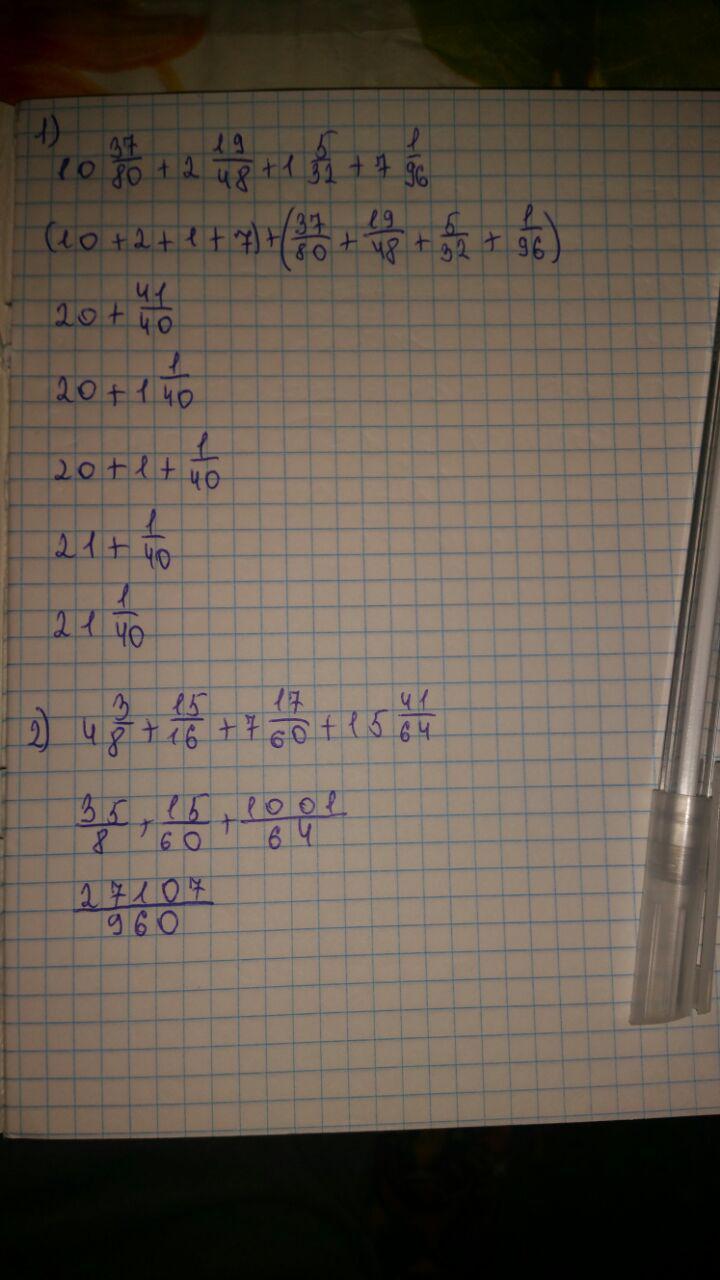 1)
10 37/80 + 2 19/48 + 1 5/32 + 7 1/96
(10 + 2 + 1 + 7) + (37/80 + 19/48 + 5/32 + 1/96)
20 + 41/40
20 + 1 1/40
20 + 1 + 1/40
21 + 1/40
21 1/40
2) 4 3/8 + 15/16 + 7 17/60 + 15 41/64
35/8 + 15/60 + 1001/64
27107/960